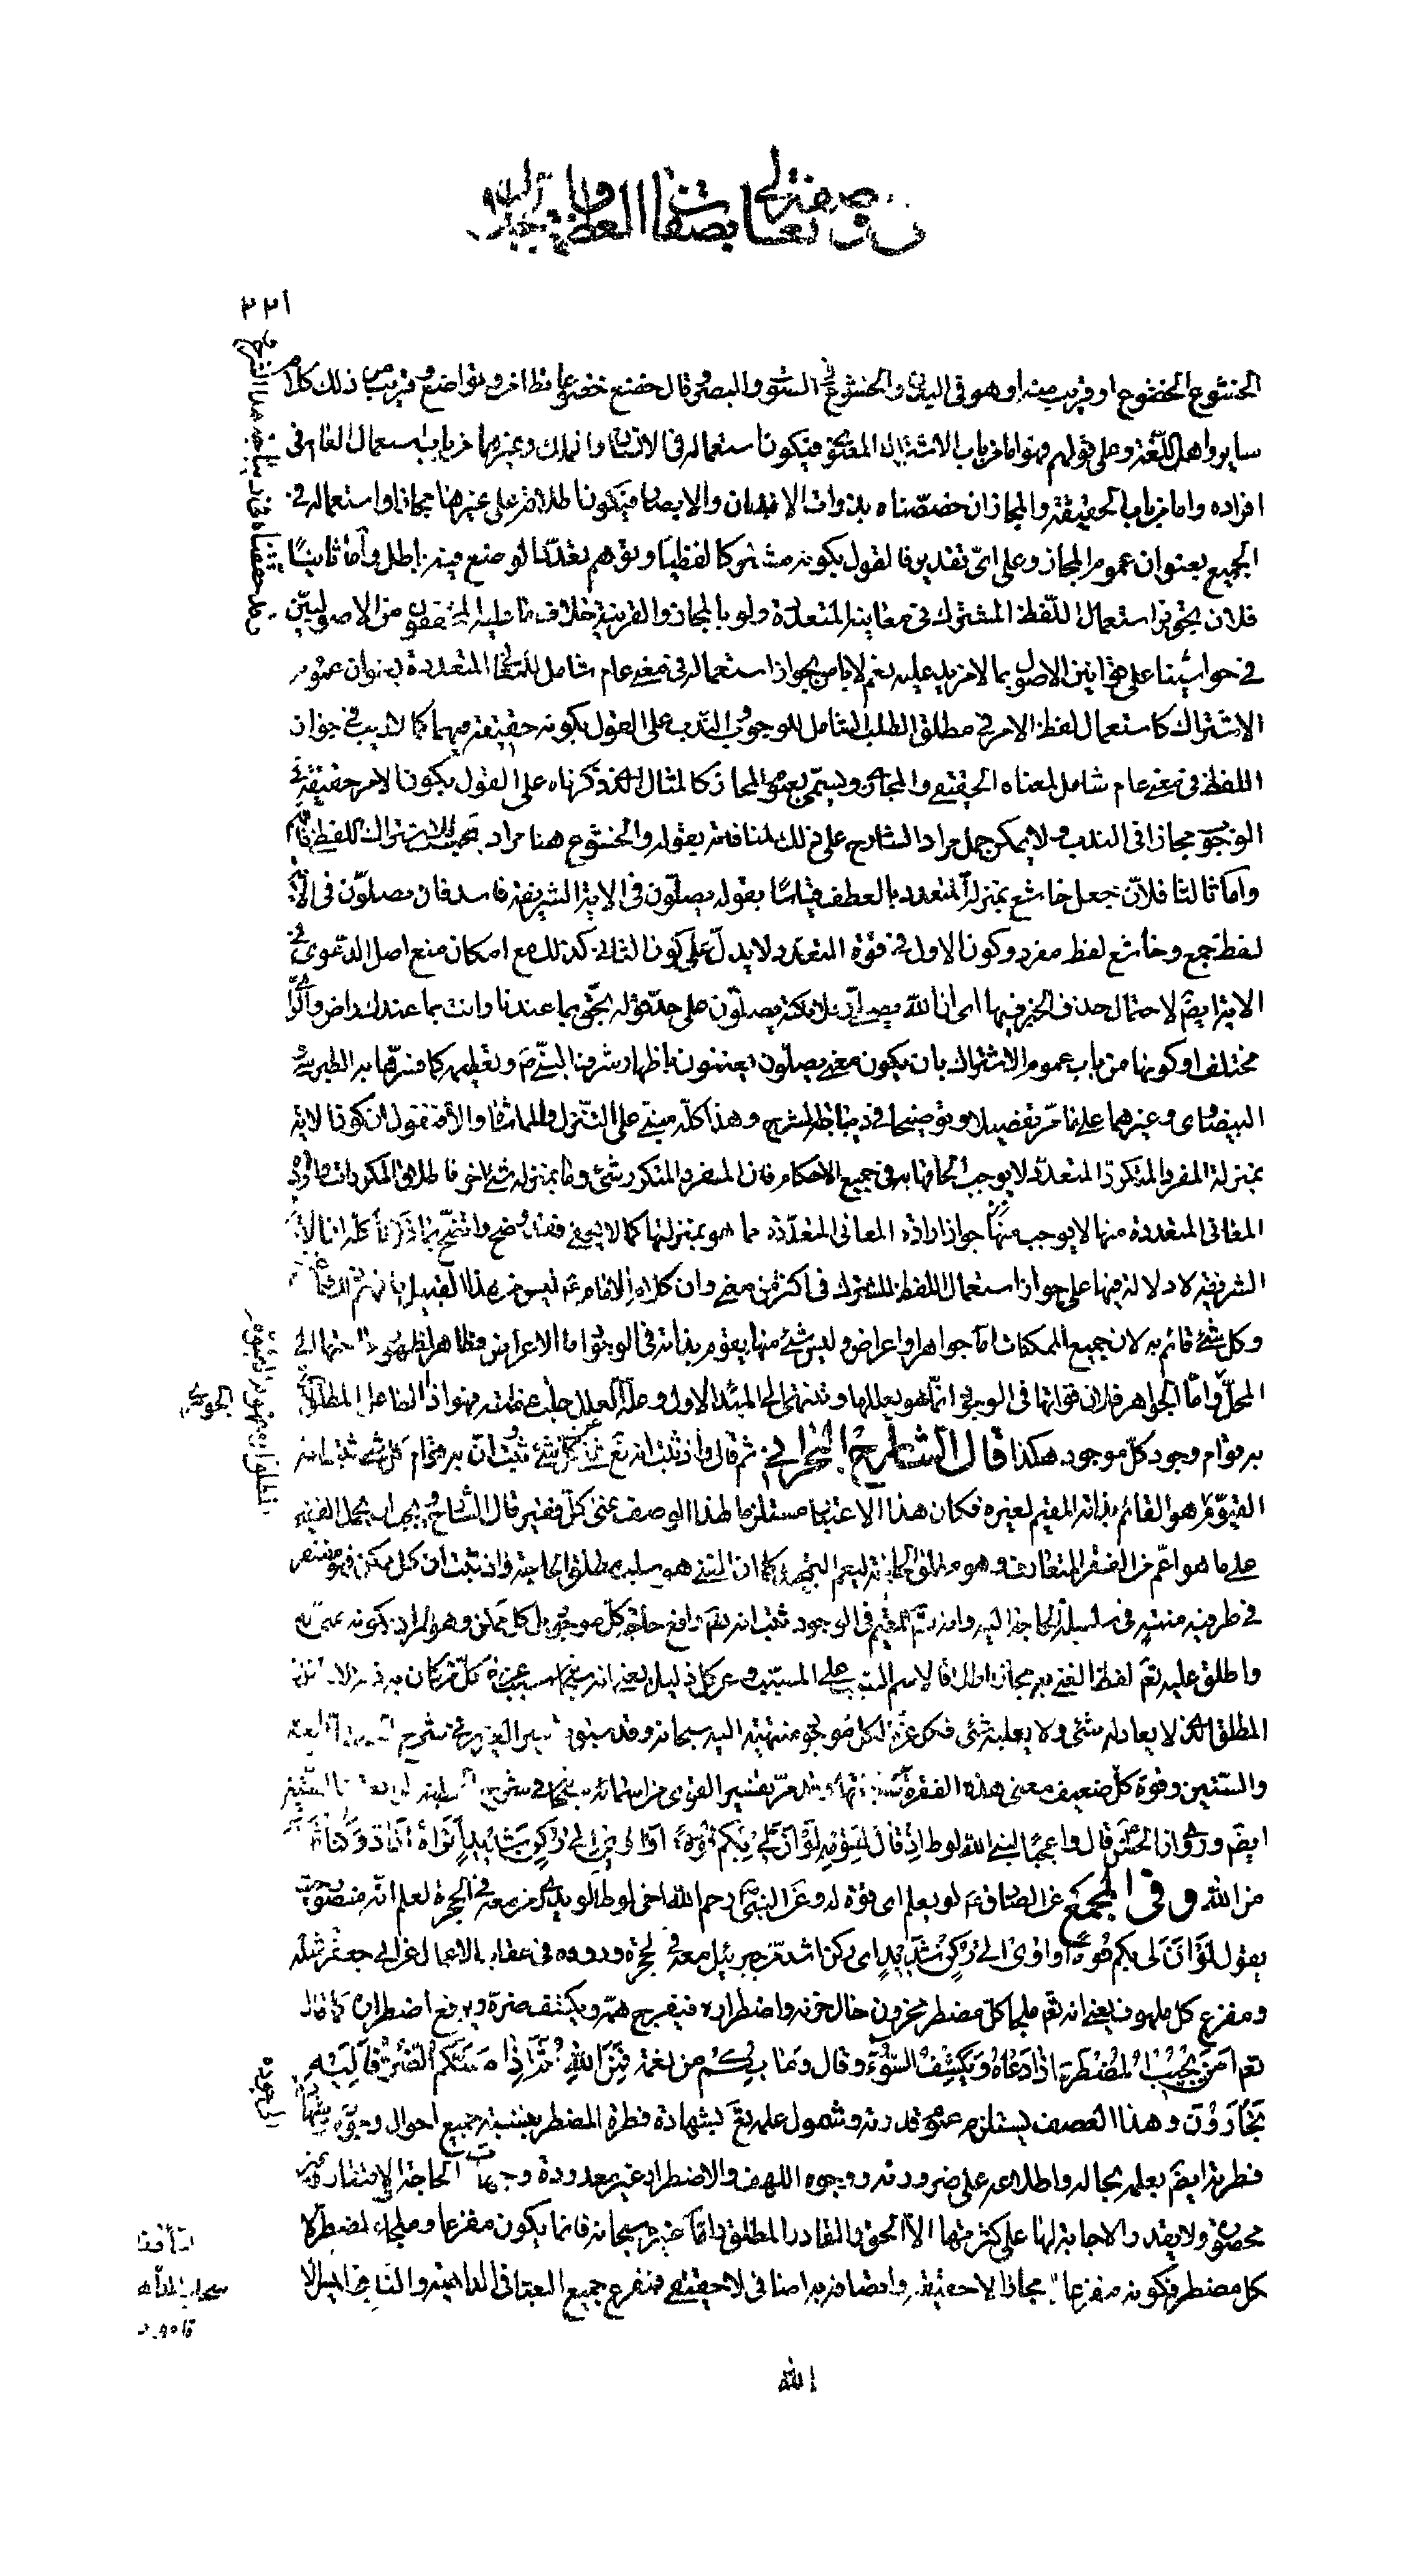 في وصفه تعالى بصفات العظمة والجلال
٢٢١
الخشوع الخضوع او قريب منه او هو في البدن والخشوع في الصوت والبصر وقال خضع خضوعا تطامن وتواضع وقريب من ذلك كلام
ساير اهل اللغة وعلى قولهم فهو اما من باب الاشتراك المعنوي فيكون استعماله في الانسان والملك وغيرهما من باب استعمال العام في
افراده واما من باب الحقيقة والمجاز ان خصصناه بذوات الابدان والابصار فيكون اطلاقه على غيرها مجازا واستعماله في
الجميع بعنوان عموم المجاز وعلى اي تقدير فالقول بكونه مشتركا لفظيا وتوهم تعدد الوضع فيه باطل واما ثانيا
فلان تجويز استعمال اللفظ المشترك في معانيه المتعددة ولو بالمجاز والقرينة خلاف ما عليه المحققون من الاصوليين
في حواشينا على قوانين الاصول بما لا مزيد عليه نعم لا باس بجواز استعماله في معنى عام شامل للمعاني المتعددة بعنوان عموم
الاشتراك كاستعمال لفظ الامر في مطلق الطلب الشامل للوجوب والندب على القول بكونه حقيقة فيهما كما لا ريب في جواز
اللفظ في معنى عام شامل لمعناه الحقيقي والمجازي ويسمى بعموم المجاز كالمثال الذي ذكرناه على القول بكون الامر حقيقة في
الوجوب مجازا في الندب ولا يمكن حمل مراد الشارح على ذلك لمنافاته بقوله والخشوع هنا مراد بحسب الاشتراك اللفظي
واما ثالثا فلان جعل خاشع بمنزلة المتعدد بالعطف قياسا بقوله يصلون في الاية الشريفة فاسد فان يصلون في الاية
لفظ جمع وخاشع لفظ مفرد وكون الاول في قوة المتعدد لا يدل على كون الثاني كذلك مع امكان منع اصل الدعوى في
الاية ايضا لاحتمال حذف الخبر فيها اي ان الله يصلي وملائكته يصلون على حد قوله نحن بما عندنا وانت بما عندك راض والراي
مختلف او كونها من باب عموم الاشتراك بان يكون معنى يصلون يعتنون باظهار شرف النبي ص وتعظيمه كما فسرها به الطبرسي
البيضاوي وغيرهما على ما مر تفصيلا وتوضيحا في ديباجة الشرح وهذا كله مبني على التنزل والمماشاة والا فنقول ان كون الاية
بمنزلة المفرد المتكرر المتعدد لا يوجب الحاقها به في جميع الاحكام فان المفرد المتكرر شيء وما بمنزلة شيء اخر فاطلاق المكررات وارادة
المعاني المتعددة منها لا يوجب جواز ارادة المعاني المتعددة مما هو بمنزلتها كما لا يخفى فقد وضح واتضح بما ذكرنا كله ان الاية
الشريفة لا دلالة فيها على جواز استعمال اللفظ المشترك في اكثر من معنى وان كلام الامام ع ليس من هذا القبيل
وكل شيء قائم به لان جميع الممكنات اما جواهر او اعراض وليس شيء منها يقوم بذاته في الوجود اما الاعراض فظاهر لظهور احتياجها الى
المحل واما الجواهر فلان قوامها في الوجود انما هو بعللها وتنتهي الى المبدء الاول وعلة العلل جلت عظمته فهو اذا الفاعل المطلق
به قوام وجود كل موجود هكذا قال الشارح البحراني ثم قال واذ ثبت انه تع غني عن كل شيء ثبت ان به قوام كل شيء ثبت انه
القيوم اذ هو القائم بذاته المقيم لغيره فكان هذا الاعتبار مستلزما لهذا الوصف غنى كل فقير قال الشارح ويجب ان يحمل الفقير
على ما هو اعم من الفقر المتعارف وهو مطلق الحاجة ليعم التمجيد كما ان الغنى هو سلب مطلق الحاجة واذ ثبت ان كل ممكن فهو مفتقر
في طرفيه منته في سلسلة الحاجة اليه وانه تع المقيم في الوجود ثبت انه تع رافع حاجة كل موجود بل كل ممكن وهو المراد بكونه غنى له
واطلق عليه تع لفظ الغنى مجازا اطلاقا لاسم السبب على المسبب وعز كل ذليل يعني انه سبحانه سبب عزة كل من كان به ذلة
المطلق الذي لا يعادله شيء ولا يغلبه شيء فكل عزة لكل موجود منتهية اليه سبحانه وقد سبق تفسير العزيز في شرح
والستين وقوة كل ضعيف معنى هذه الفقرة كسابقتها وقد مر تفسير القوي من اسمائه سبحانه في شرح
ايضا وروى ان الحسن قال واعجبا لنبي الله لوط اذ قال لقومه لو ان لي بكم قوة او اوي الى ركن شديد اتراه اراد ركنا اشد
من الله وفي المجمع عن الصادق ع لو يعلم اي قوة له وعن النبي ص رحم الله اخي لوطا لو يدري من معه في الحجرة لعلم انه منصور حيث
يقول لو ان لي بكم قوة او اوي الى ركن شديد اي ركن اشد من جبرئيل معه في الحجرة ورووه في عقاب الاعمال عن ابي جعفر مثله
ومفزع كل ملهوف يعني انه تع ملجا كل مضطر محزون حال حزنه واضطراره فيفرج همه ويكشف ضره ويرفع اضطراره كما قال
تع امن يجيب المضطر اذا دعاه ويكشف السوء وقال وما بكم من نعمة فمن الله ثم اذا مسكم الضر فاليه
تجارون وهذا الوصف يستلزم عموم قدرته وشمول علمه تع لشهادة فطرة المضطر بنسبة جميع احوال وجوده
فطرته ايضا بعلمه بحاله واطلاعه على ضرورته ووجوه اللهف والاضطرار غير معدودة وجهات الحاجة والافتقار غير
محصورة ولا يقدر والاجابة لها على كثرتها الا الحق والقادر المطلق واما غيره سبحانه فانما يكون مفزعا وملجاء لمضطر لا
كل مضطر فكونه مفزعا مجازا لا حقيقة واضافية اضافي لا حقيقي فمفزع جميع العباد في الداهية والناد ليس الا
الله